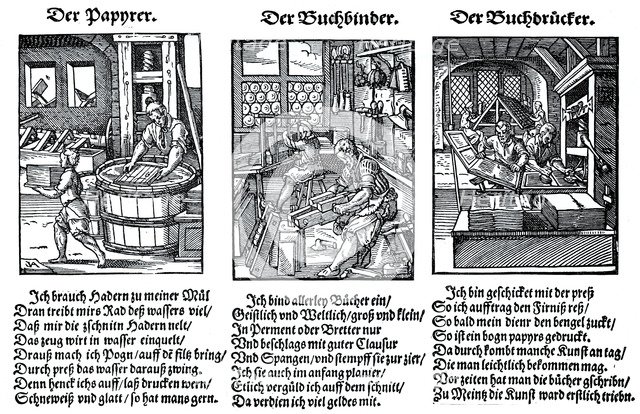 Der Papyrer.
Ich brauch Hadern zu meiner Mül
Dran treibt mirs Rad deß wassers viel/
Daß mir die zschnitn Hadern nelt/
Das zeug wirt in wasser einquelt/
Drauß mach ich Pogn/ auff dē filtz bring/
Durch preß das wasser darauß zwing.
Denn henck ichs auff/ laß drucken wern/
Schneweiß und glatt/ so hat mans gern.
Der Buchbinder.
Ich bind allerley Bücher ein/
Geistlich und Weltlich/ groß und klein/
In Perment oder Bretter nur
Und beschlags mit guter Clausur
Und Spangen/ und stempff sie zur zier/
Ich sie auch im anfang planier/
Etlich vergüld ich auff dem schnitt/
Da verdien ich viel geldes mit.
Der Buchdrücker.
Ich bin geschicket mit der preß
So ich aufftrag den Firniß reß/
So bald mein dienr den bengel zuckt/
So ist ein bogn papyrs gedruckt.
Da durch kombt manche Kunst an tag/
Die man leichtlich bekommen mag.
Vor zeiten hat man die bücher gschribn/
Zu Meintz die Kunst ward erstlich triebn.